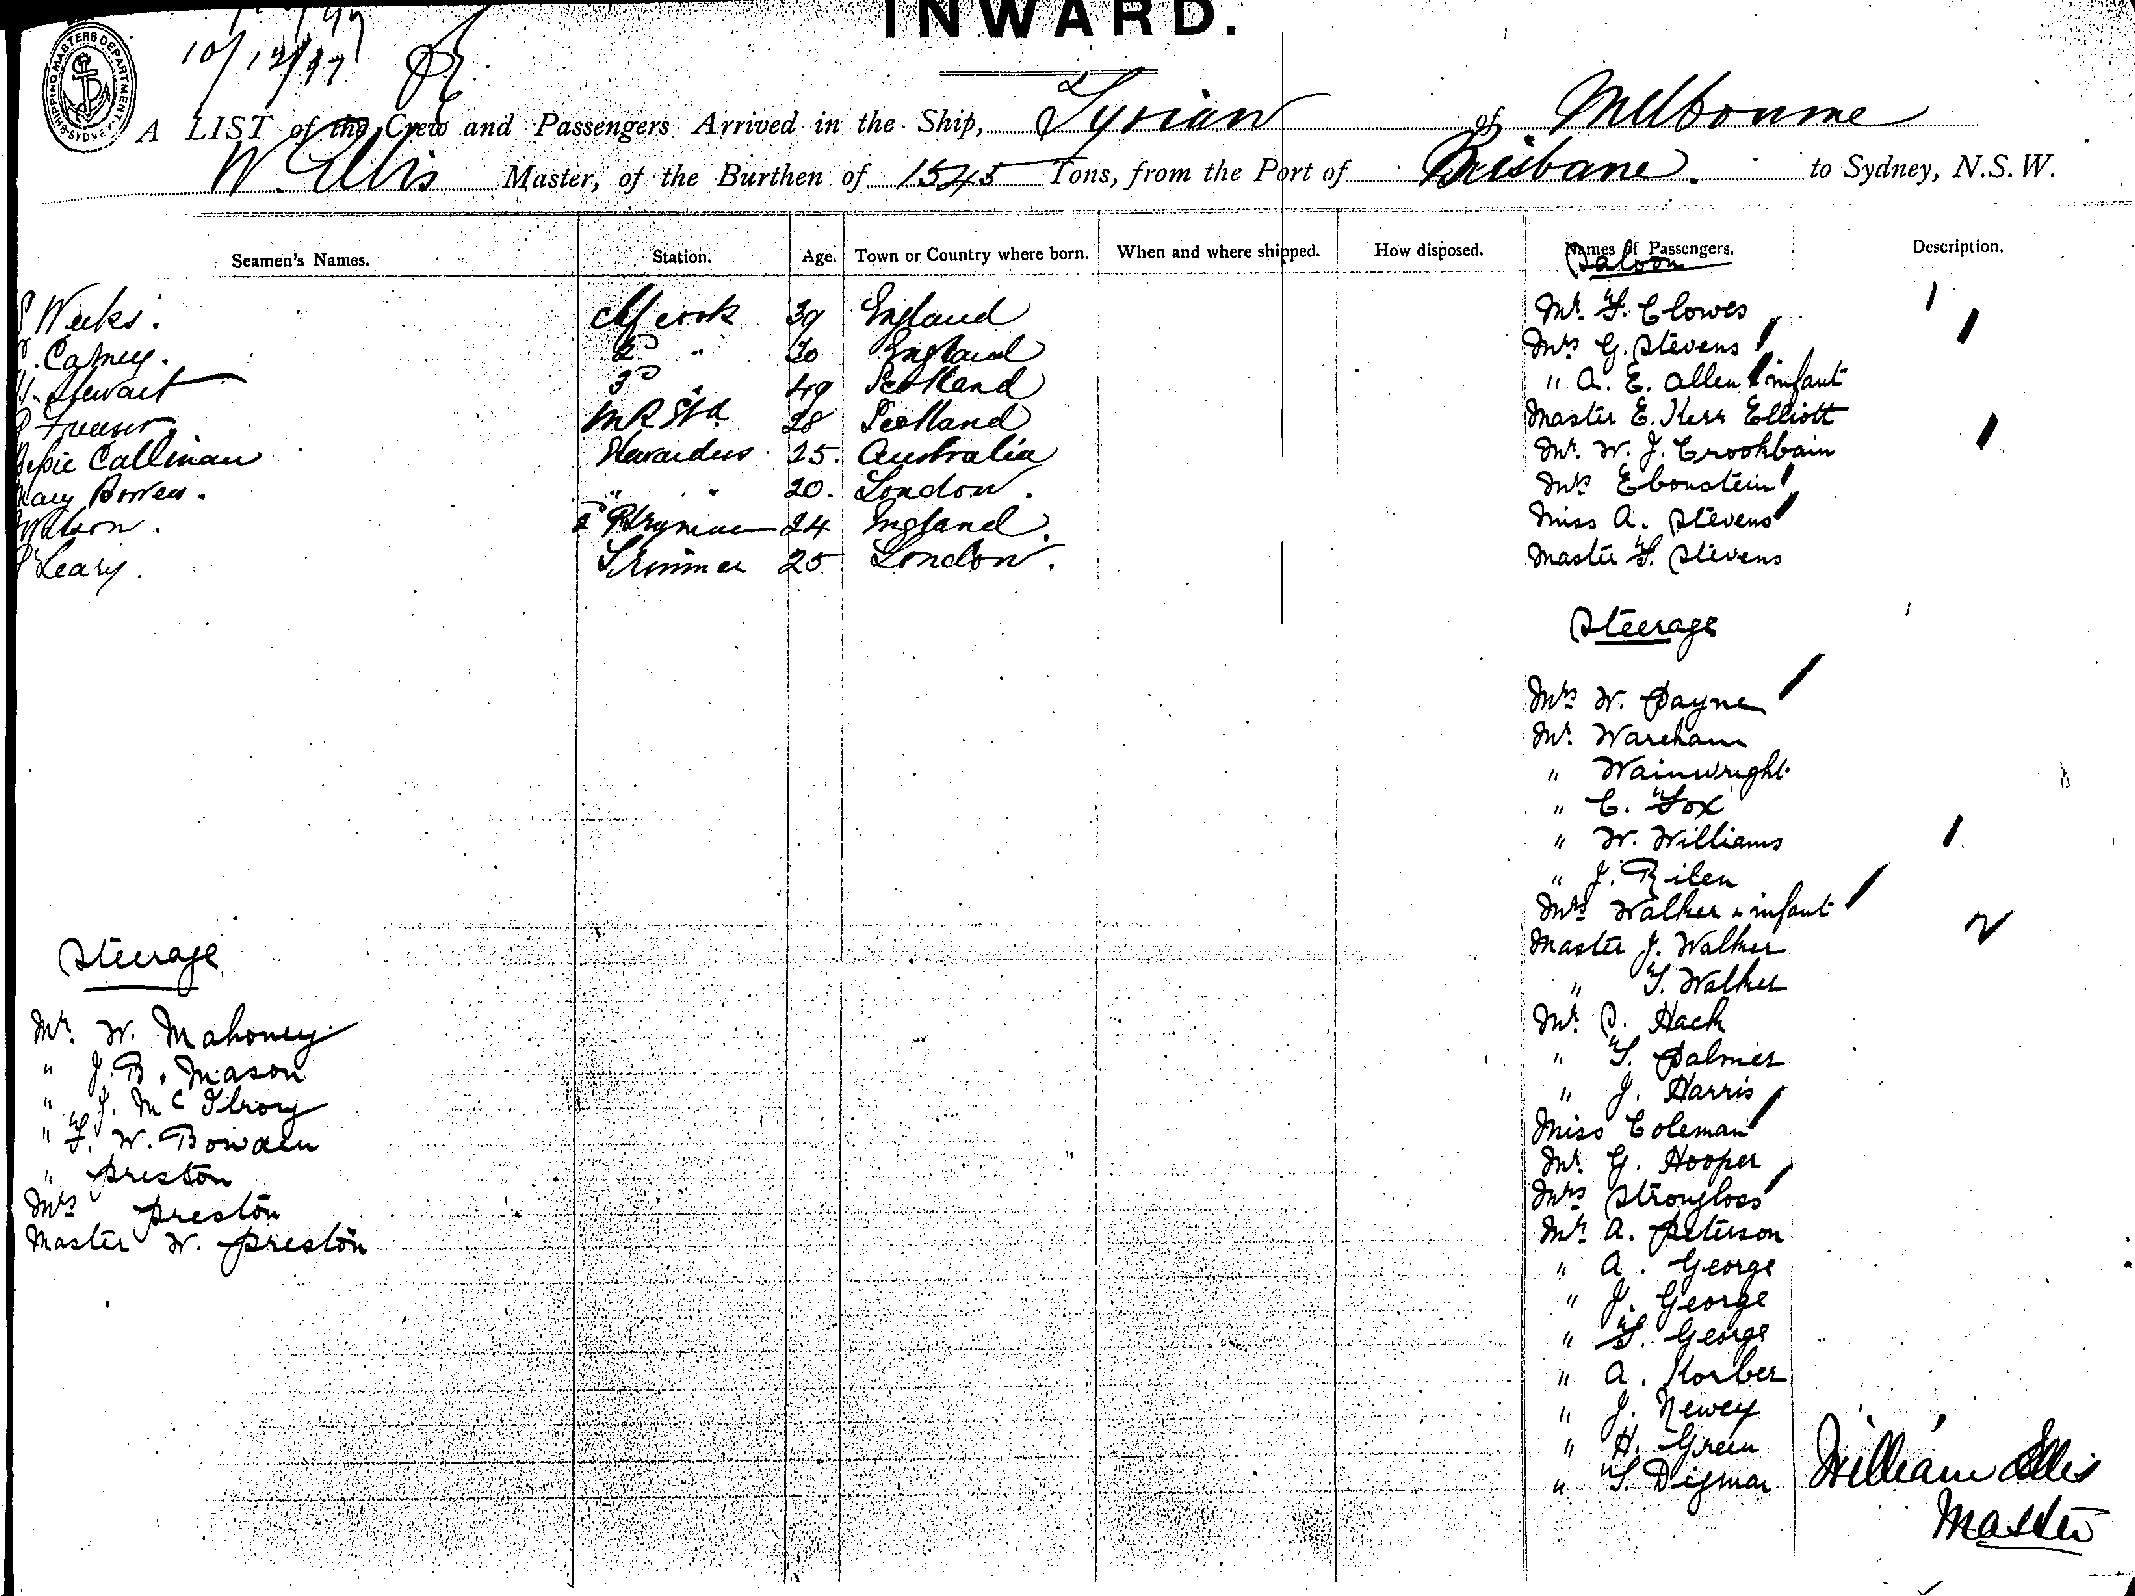 INWARD.
10/12/97
SHIPPING MASTERS DEPARTMENT SYDNEY
A LIST of the Crew and Passengers Arrived in the Ship, Tyrian of Melbourne
W. Ellis Master, of the Burthen of 1545 Tons, from the Port of Brisbane. to Sydney, N.S.W.
Seamen's Names. Station. Age. Town or Country where born. When and where shipped. How disposed. Names of Passengers. Description.
Saloon
Weeks. Ch cook 39 England Mr. F. Clowes 1
2d " 30 England Mrs G. Stevens 1
Stewart 3d " 49 Scotland " A. E. Allen & infant
Fraser M R Std. 28 Scotland Master E. Kerr Elliott
Callinan Stewardess 25. Australia Mr. W. J. Crookbain 1
Bowen. " " 20. London. Mrs Ebonstein
Watson. 2 Ptryman 24 England. Miss A. Stevens
Leary. Trimmer 25 London. Master F. Stevens
Steerage
Mrs W. Payne
Mr. Wareham
" Wainwright
" C. Fox
" W. Williams 1
" J. Rilen
Mrs Walker & infant
Master J. Walker 2
" F. Walker
Mr. S. Hack
" F. Palmer
" J. Harris
Miss Coleman
Mr. G. Hooper
Mrs Strongloss
Mr. A. Peterson
" A. George
" J. George
" F. George
" A. Korber
" J. Newey
" H. Green
" F. Digman
Steerage
Mr. W. Mahoney
" J. B. Mason
" J. McIlroy
" F. W. Bowden
" Preston
Mrs Preston
Master W. Preston
William Ellis
Master